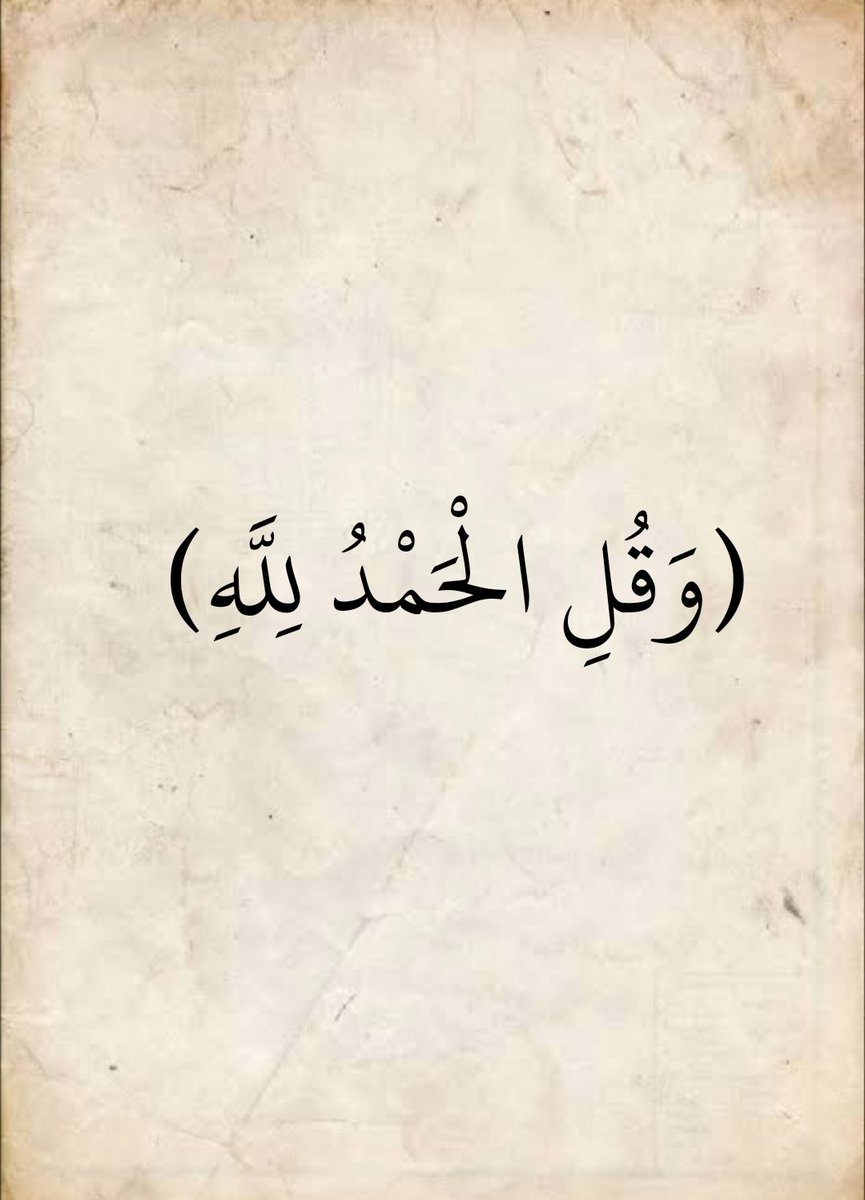 (وَقُلِ الْحَمْدُ لِلَّهِ)